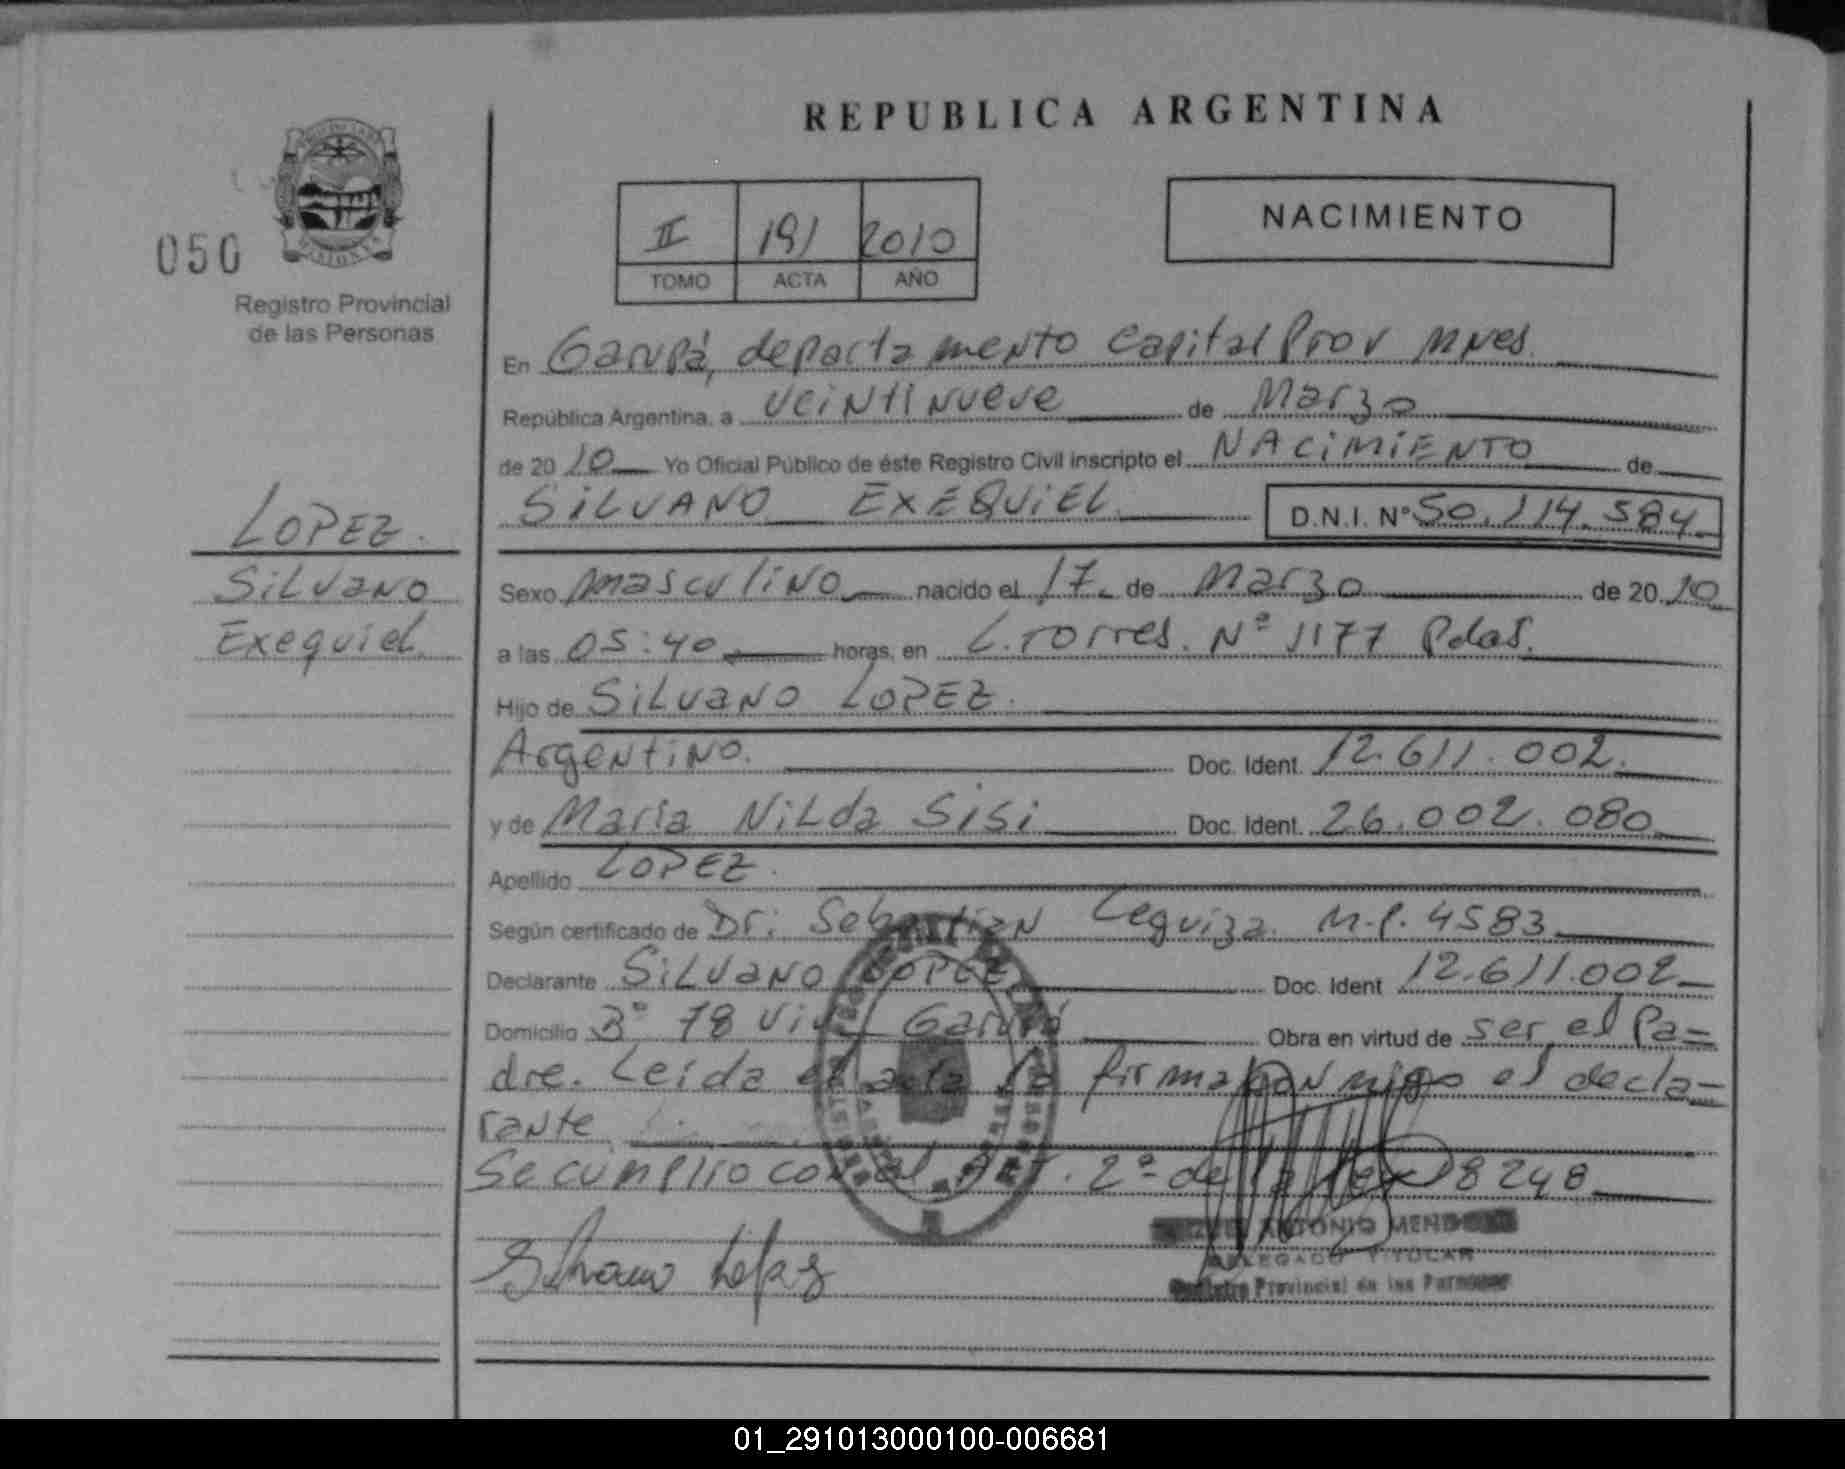 REPUBLICA ARGENTINA
NACIMIENTO
II 191 2010
TOMO ACTA AÑO
050
Registro Provincial
de las Personas
En Garupá, departamento Capital Prov Mnes.
República Argentina, a veintinueve de Marzo
de 2010 Yo Oficial Público de éste Registro Civil inscripto el NACIMIENTO de
SILVANO EXEQUIEL D.N.I. N° 50.114.584
LOPEZ.
Silvano
Exequiel.
Sexo masculino nacido el 17 de Marzo de 2010
a las 05:40 horas, en L. Torres. N° 1177 Pdas.
Hijo de SILVANO LOPEZ.
Argentino. Doc. Ident. 12.611.002.
y de Maria Nilda Sisi Doc. Ident. 26.002.080
Apellido LOPEZ.
Según certificado de Dr. Sebastian Leguiza M.P. 4583
Declarante SILVANO LOPEZ Doc. Ident 12.611.002
Domicilio 3° 78 Viv Garupá Obra en virtud de ser el Pa-
dre. Leida el acta la firma conmigo el decla-
rante
Se cumplio con el Art. 2° de la Ley 18248
Silvano Lopez
ANTONIO
DELEGADO TITULAR
Registro Provincial de las Personas
01_291013000100-006681